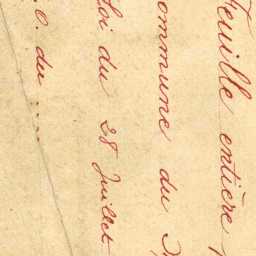 Feuille entière
ommune du
Loi du 28 Juillet
O. du